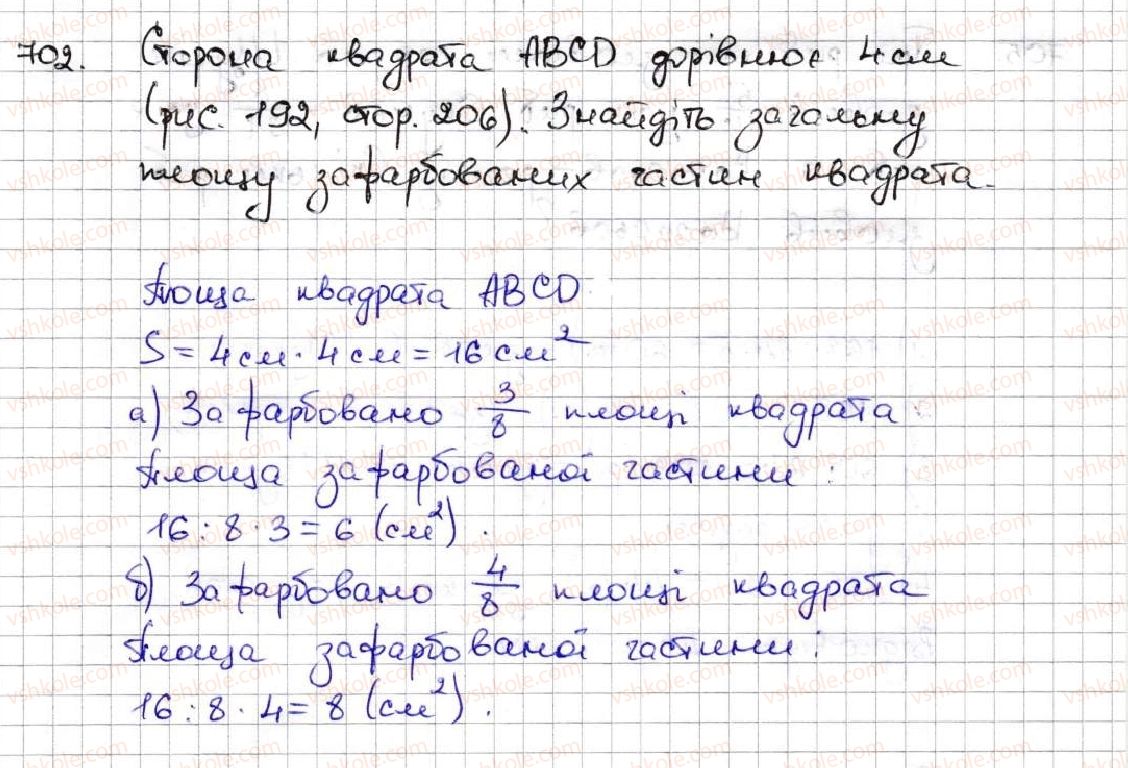 702. Сторона квадрата ABCD дорівнює 4 см
(рис. 192, стор. 206). Знайдіть загальну
площу зафарбованих частин квадрата.
Площа квадрата ABCD
S = 4 см · 4 см = 16 см²
а) Зафарбовано 3/8 площі квадрата
Площа зафарбованої частини :
16 : 8 · 3 = 6 (см²) .
б) Зафарбовано 4/8 площі квадрата
Площа зафарбованої частини :
16 : 8 · 4 = 8 (см²) .